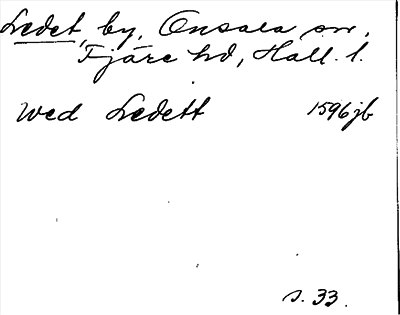 Ledet, by, Onsala sn,
Fjäre hd, Hall. l.
wed Ledett 1596 jb
s. 33.